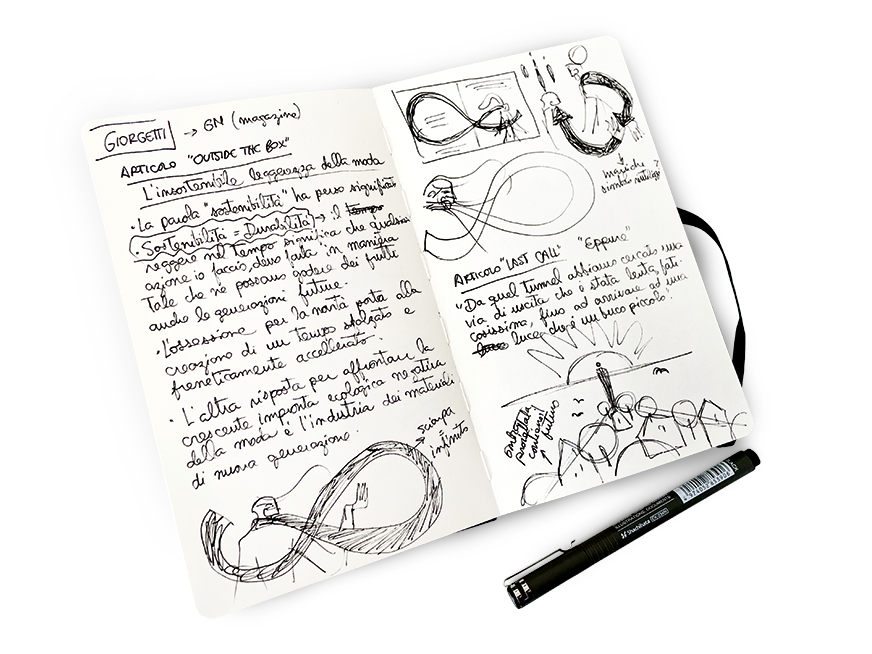 GIORGETTI → GM (magazine)
ARTICOLO "OUTSIDE THE BOX"
L'insostenibile leggerezza della moda
• La parola "sostenibilità" ha perso significato
• Sostenibilità = Durabilità → il tempo
reggere nel tempo significa che qualsiasi
azione io faccio, devo farla in maniera
tale che ne possano godere dei frutti
anche le generazioni future.
• L'ossessione per la novità porta alla
creazione di un tempo sfalzato e
freneticamente accellerato.
• L'altra risposta per affrontare la
crescente impronta ecologica negativa
della moda è l'industria dei materiali
di nuova generazione.
sciarpa
=
infinito
maniche
simbolo
?
ARTICOLO "LAST CALL" "Eppure"
"Da quel tunnel abbiamo cercato una
via di uscita che è stata lenta, fati-
cosissima, fino ad arrivare ad una
luce, dov'è un buco piccolo".
ombra
contiene il
futuro
Shachihata